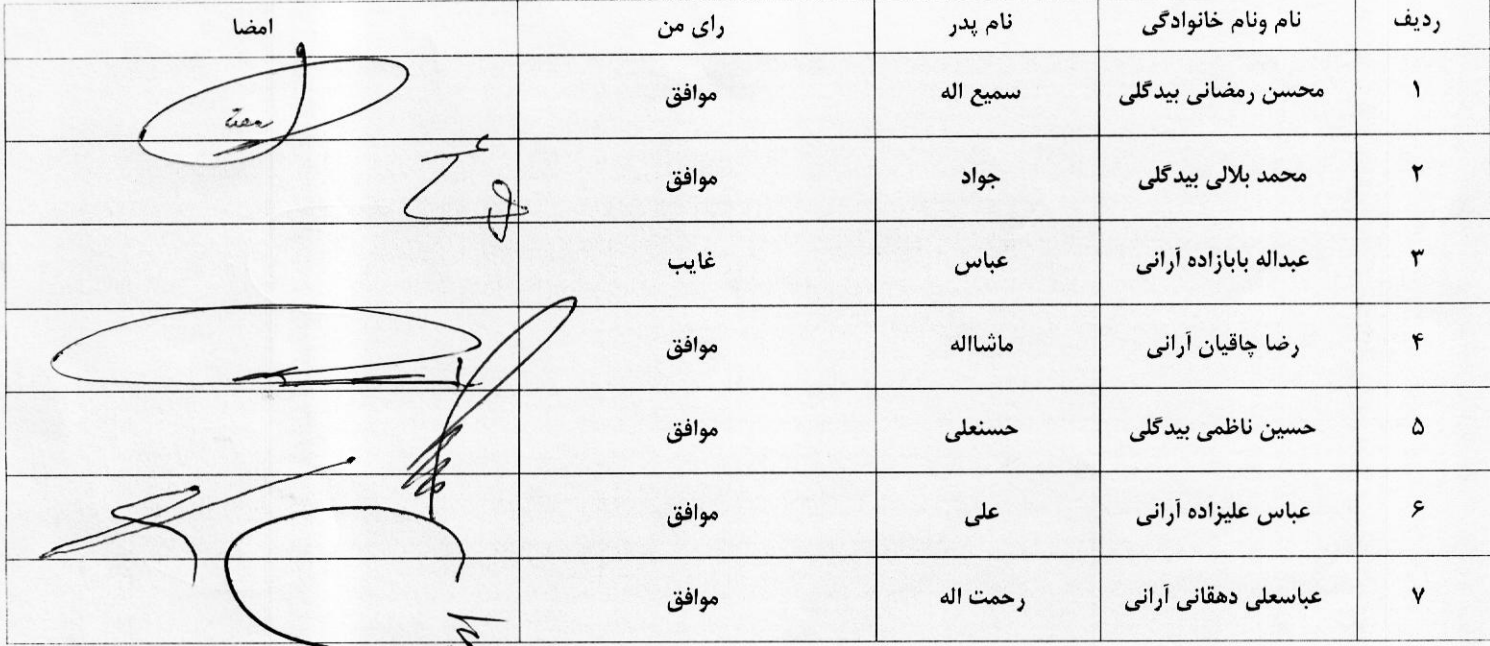 ردیف نام ونام خانوادگی نام پدر رای من امضا
۱ محسن رمضانی بیدگلی سمیع اله موافق
۲ محمد بلالی بیدگلی جواد موافق
۳ عبداله بابازاده آرانی عباس غایب
۴ رضا چاقیان آرانی ماشااله موافق
۵ حسین ناظمی بیدگلی حسنعلی موافق
۶ عباس علیزاده آرانی علی موافق
۷ عباسعلی دهقانی آرانی رحمت اله موافق